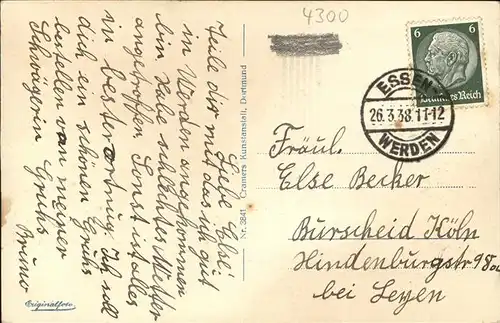 4300
Liebe Else!
Teile dir mit das ich gut
in Würden angekommen
bin habe schlechtes Wetter
angetroffen Sonst ist alles
in bester ortnug. Ich soll
dich ein schönen Gruhs
bestellen van meiner
Schwägerin Gruhs
Bruno
Originalfoto
Nr. 3841 Cramers Kunstanstalt, Dortmund
6 6
Deutsches Reich
ESSEN
26.3.38.11-12
WERDEN
Fräul.
Else Becker
Burscheid Köln
Hindenburgstr 98
bei Leyen